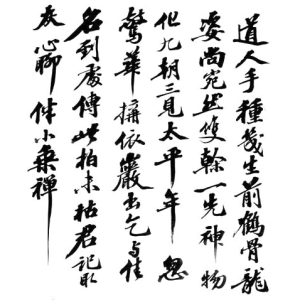 道人手種幾生前鶴骨龍
姿尚宛然雙幹一先神物
化九朝三見太平年忽
驚華構依巖出乞与佳
名到處傳此柏未枯君記取
灰心聊伴小乘禪